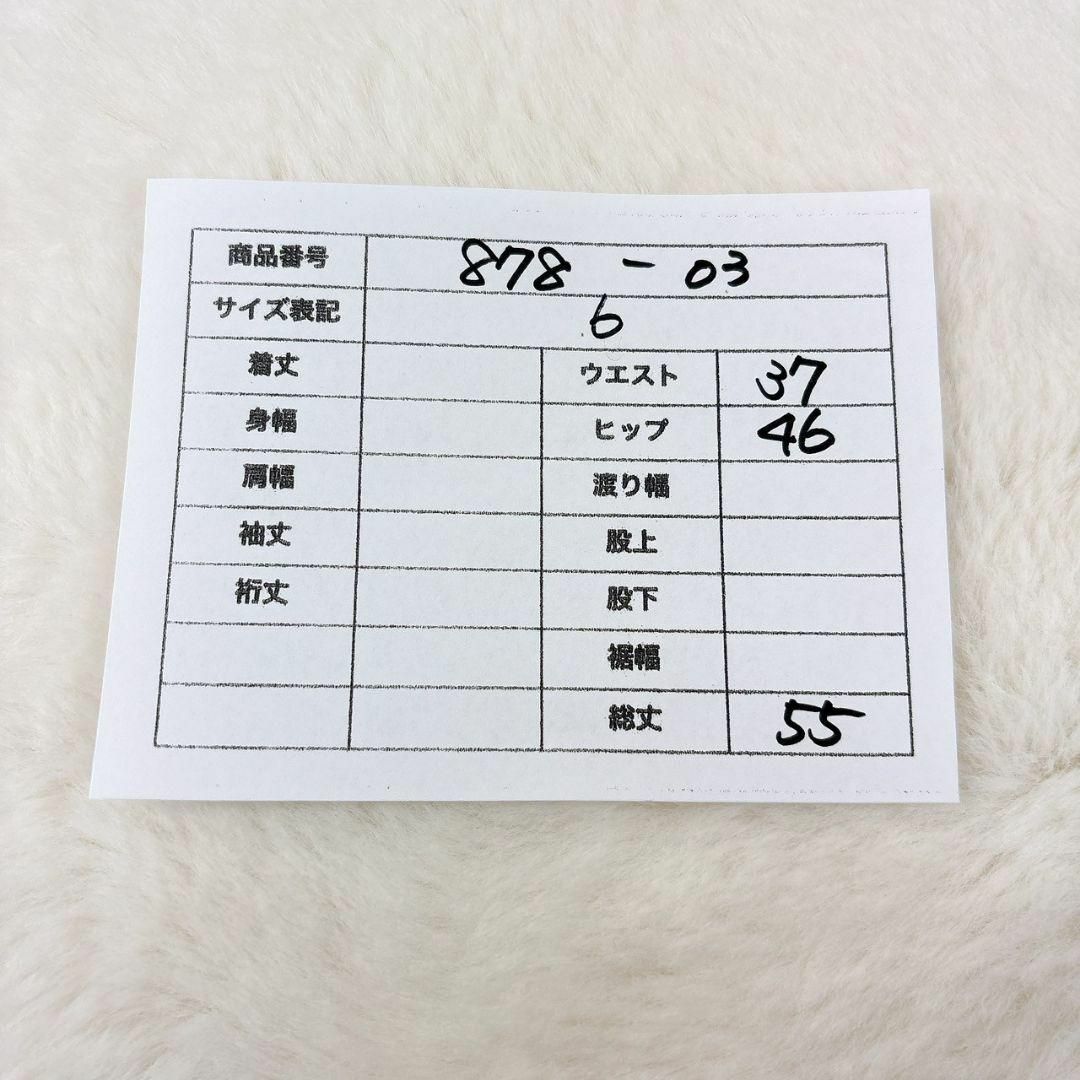 商品番号 878 - 03
サイズ表記 6
着丈 ウエスト 37
身幅 ヒップ 46
肩幅 渡り幅
袖丈 股上
裄丈 股下
裾幅
総丈 55